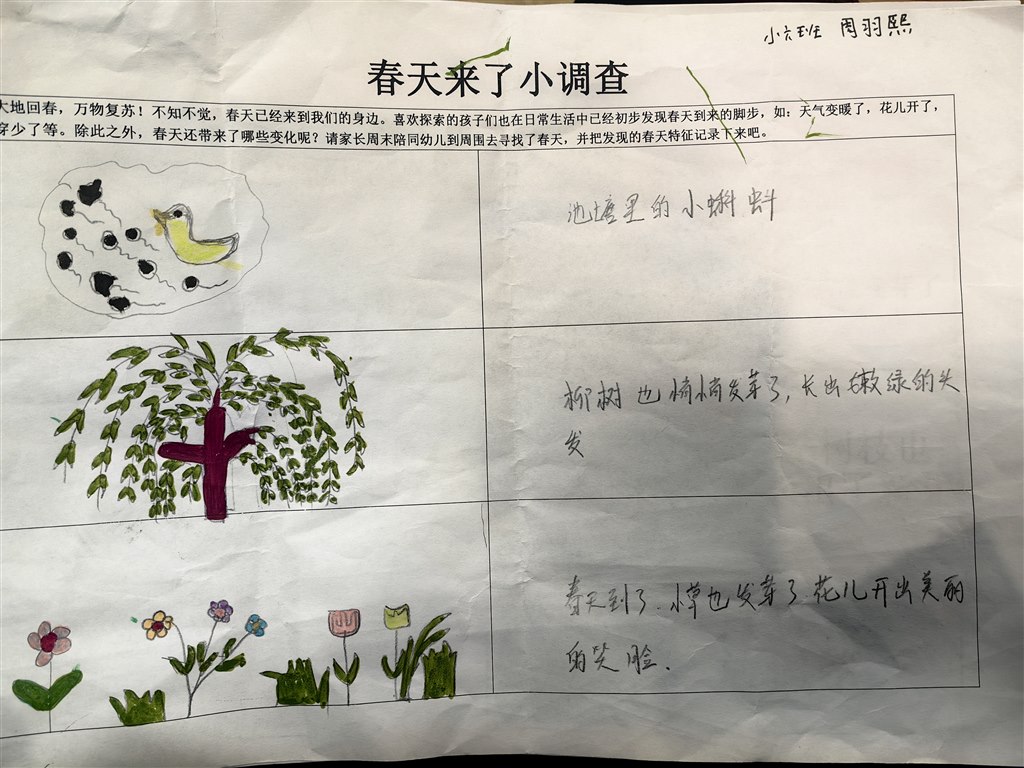 小六班 周羽熙
春天来了小调查
大地回春，万物复苏！不知不觉，春天已经来到我们的身边。喜欢探索的孩子们也在日常生活中已经初步发现春天到来的脚步，如：天气变暖了，花儿开了，
穿少了等。除此之外，春天还带来了哪些变化呢？请家长周末陪同幼儿到周围去寻找了春天，并把发现的春天特征记录下来吧。
池塘里的小蝌蚪
柳树也悄悄发芽了，长出嫩绿的头
发
春天到了.小草也发芽了.花儿开出美丽
的笑脸.